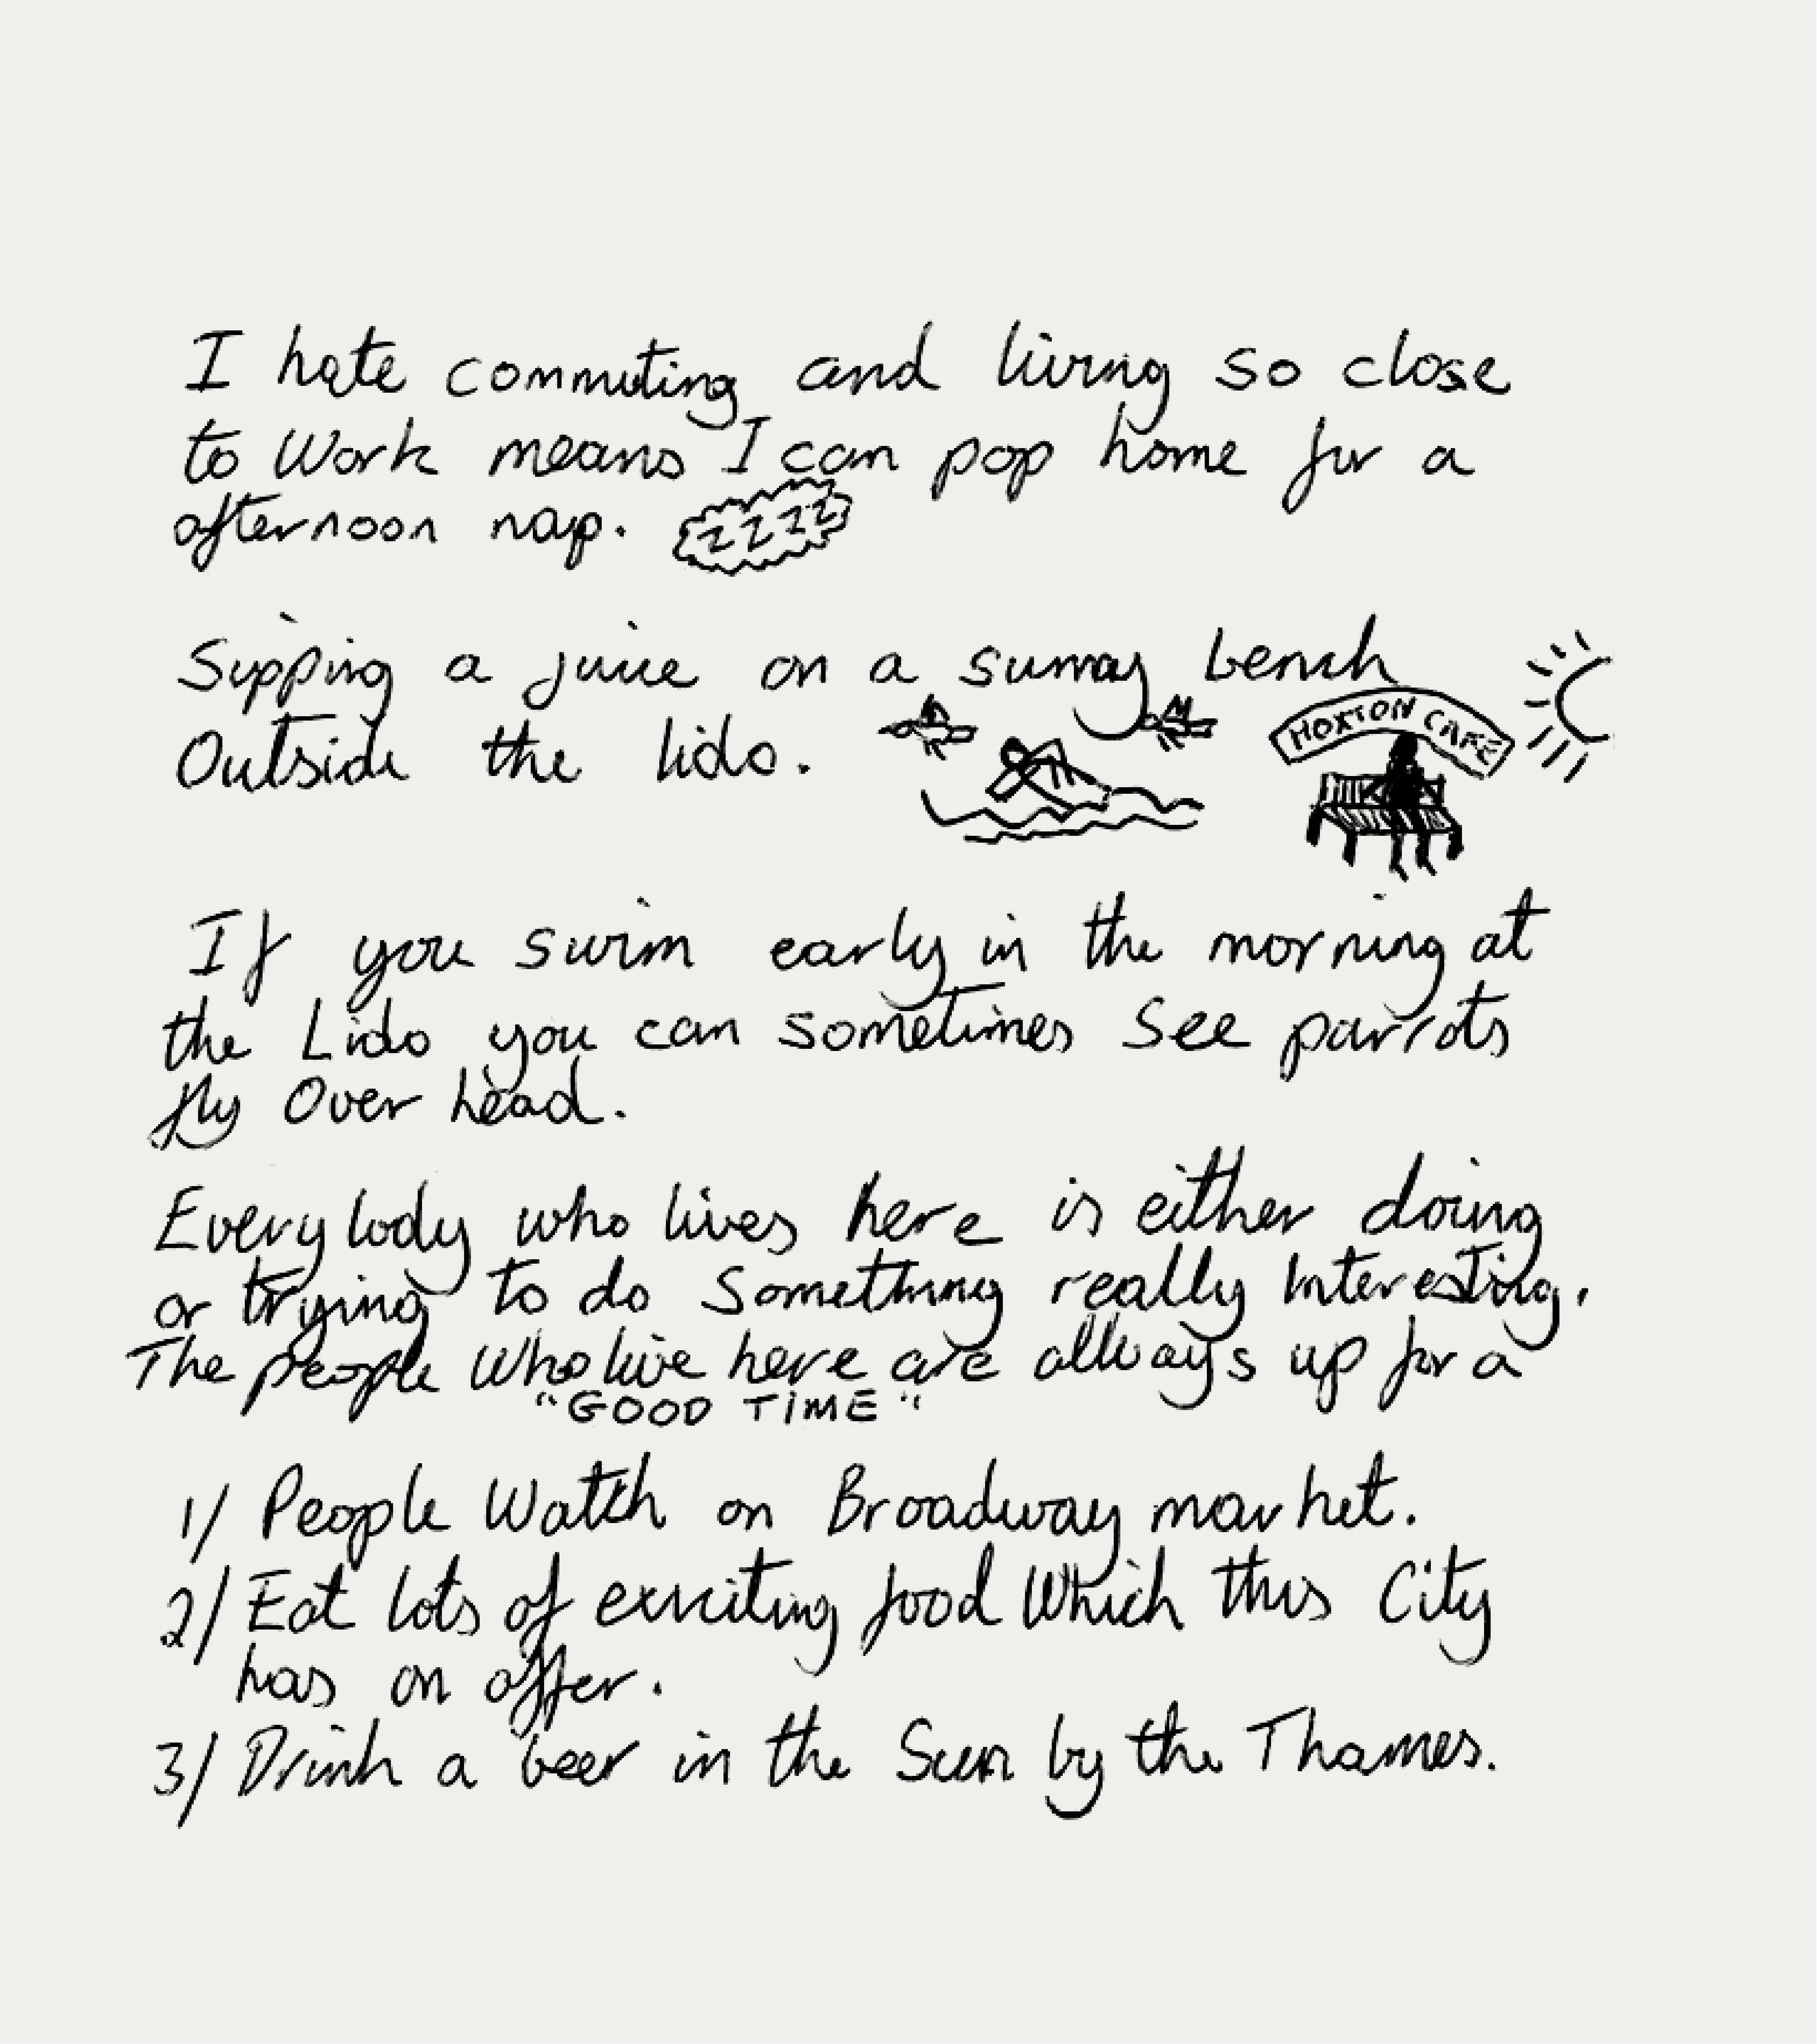 I hate commuting and living so close
to Work means I can pop home for a
afternoon nap. ZZZZ
Sipping a juice on a sunny bench
Outside the lido.
HOXTON CAFE
If you swim early in the morning at
the Lido you can sometimes see parrots
fly Over head.
Everybody who lives here is either doing
or trying to do Something really Interesting.
The people Who live here are allways up for a
"GOOD TIME"
1/ People Watch on Broadway market.
2/ Eat lots of exciting food Which this City
has on offer.
3/ Drink a beer in the Sun by the Thames.